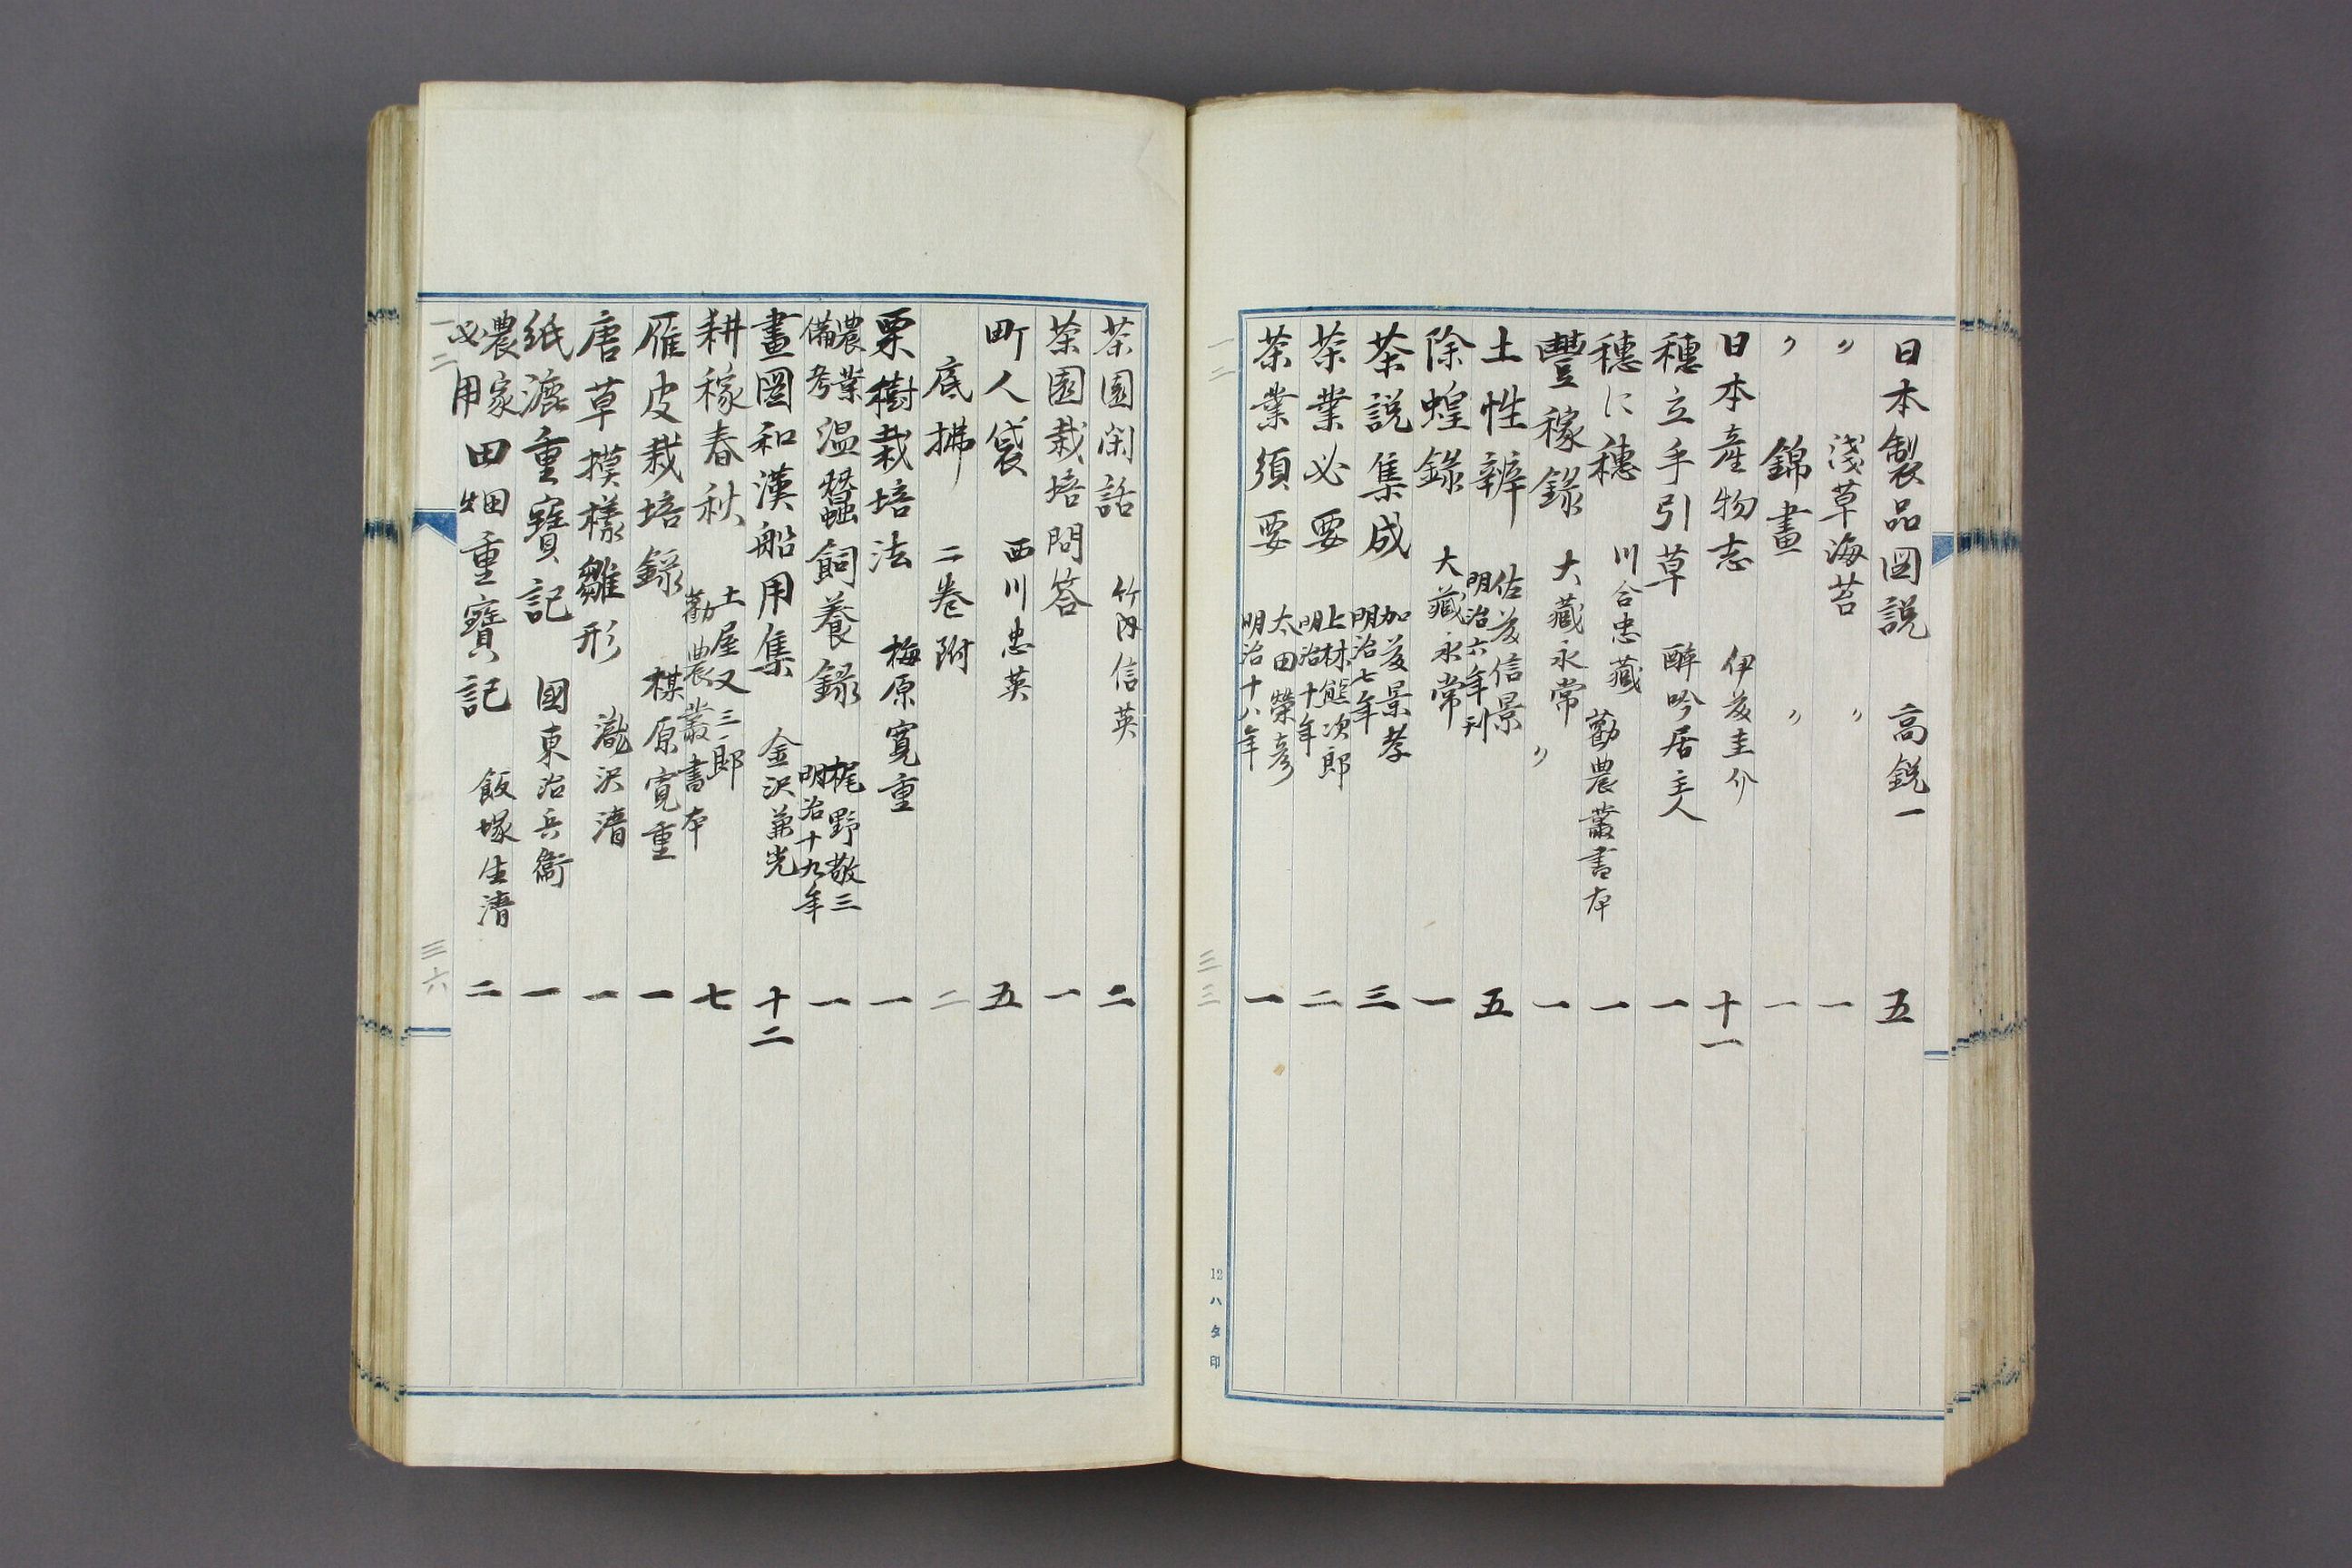 日本製品図説 高鋭一 五
〃 淺草海苔 〃 一
〃 錦畫 〃 一
日本産物志 伊藤圭介 十一
穗立手引草 酔吟居主人 一
穗に穗 川合忠藏 勸農叢書本 一
豊稼録 大藏永常 〃 一
土性辨 佐藤信景 明治六年刊 五
除蝗録 大藏永常 一
茶説集成 加藤景孝 明治七年 三
茶業必要 上林熊次郎 明治十年 二
茶業須要 太田榮彦 明治十八年 一
一二
三三
12ハタ印
茶園閑話 竹内信英 二
茶園栽培問答 一
町人袋 西川忠英 五
底拂 二巻附 二
栗樹栽培法 梅原寛重 一
農業備考 温蠶飼養録 梶野敬三 明治十九年 一
畫圖和漢船用集 金沢兼光 十二
耕稼春秋 土屋又三郎 勸農叢書本 七
雁皮栽培録 楳原寛重 一
唐草摸樣雛形 瀧沢清 一
紙漉重寶記 國東治兵衞 一
農家必用 田畑重寶記 飯塚生清 二
一二
三六